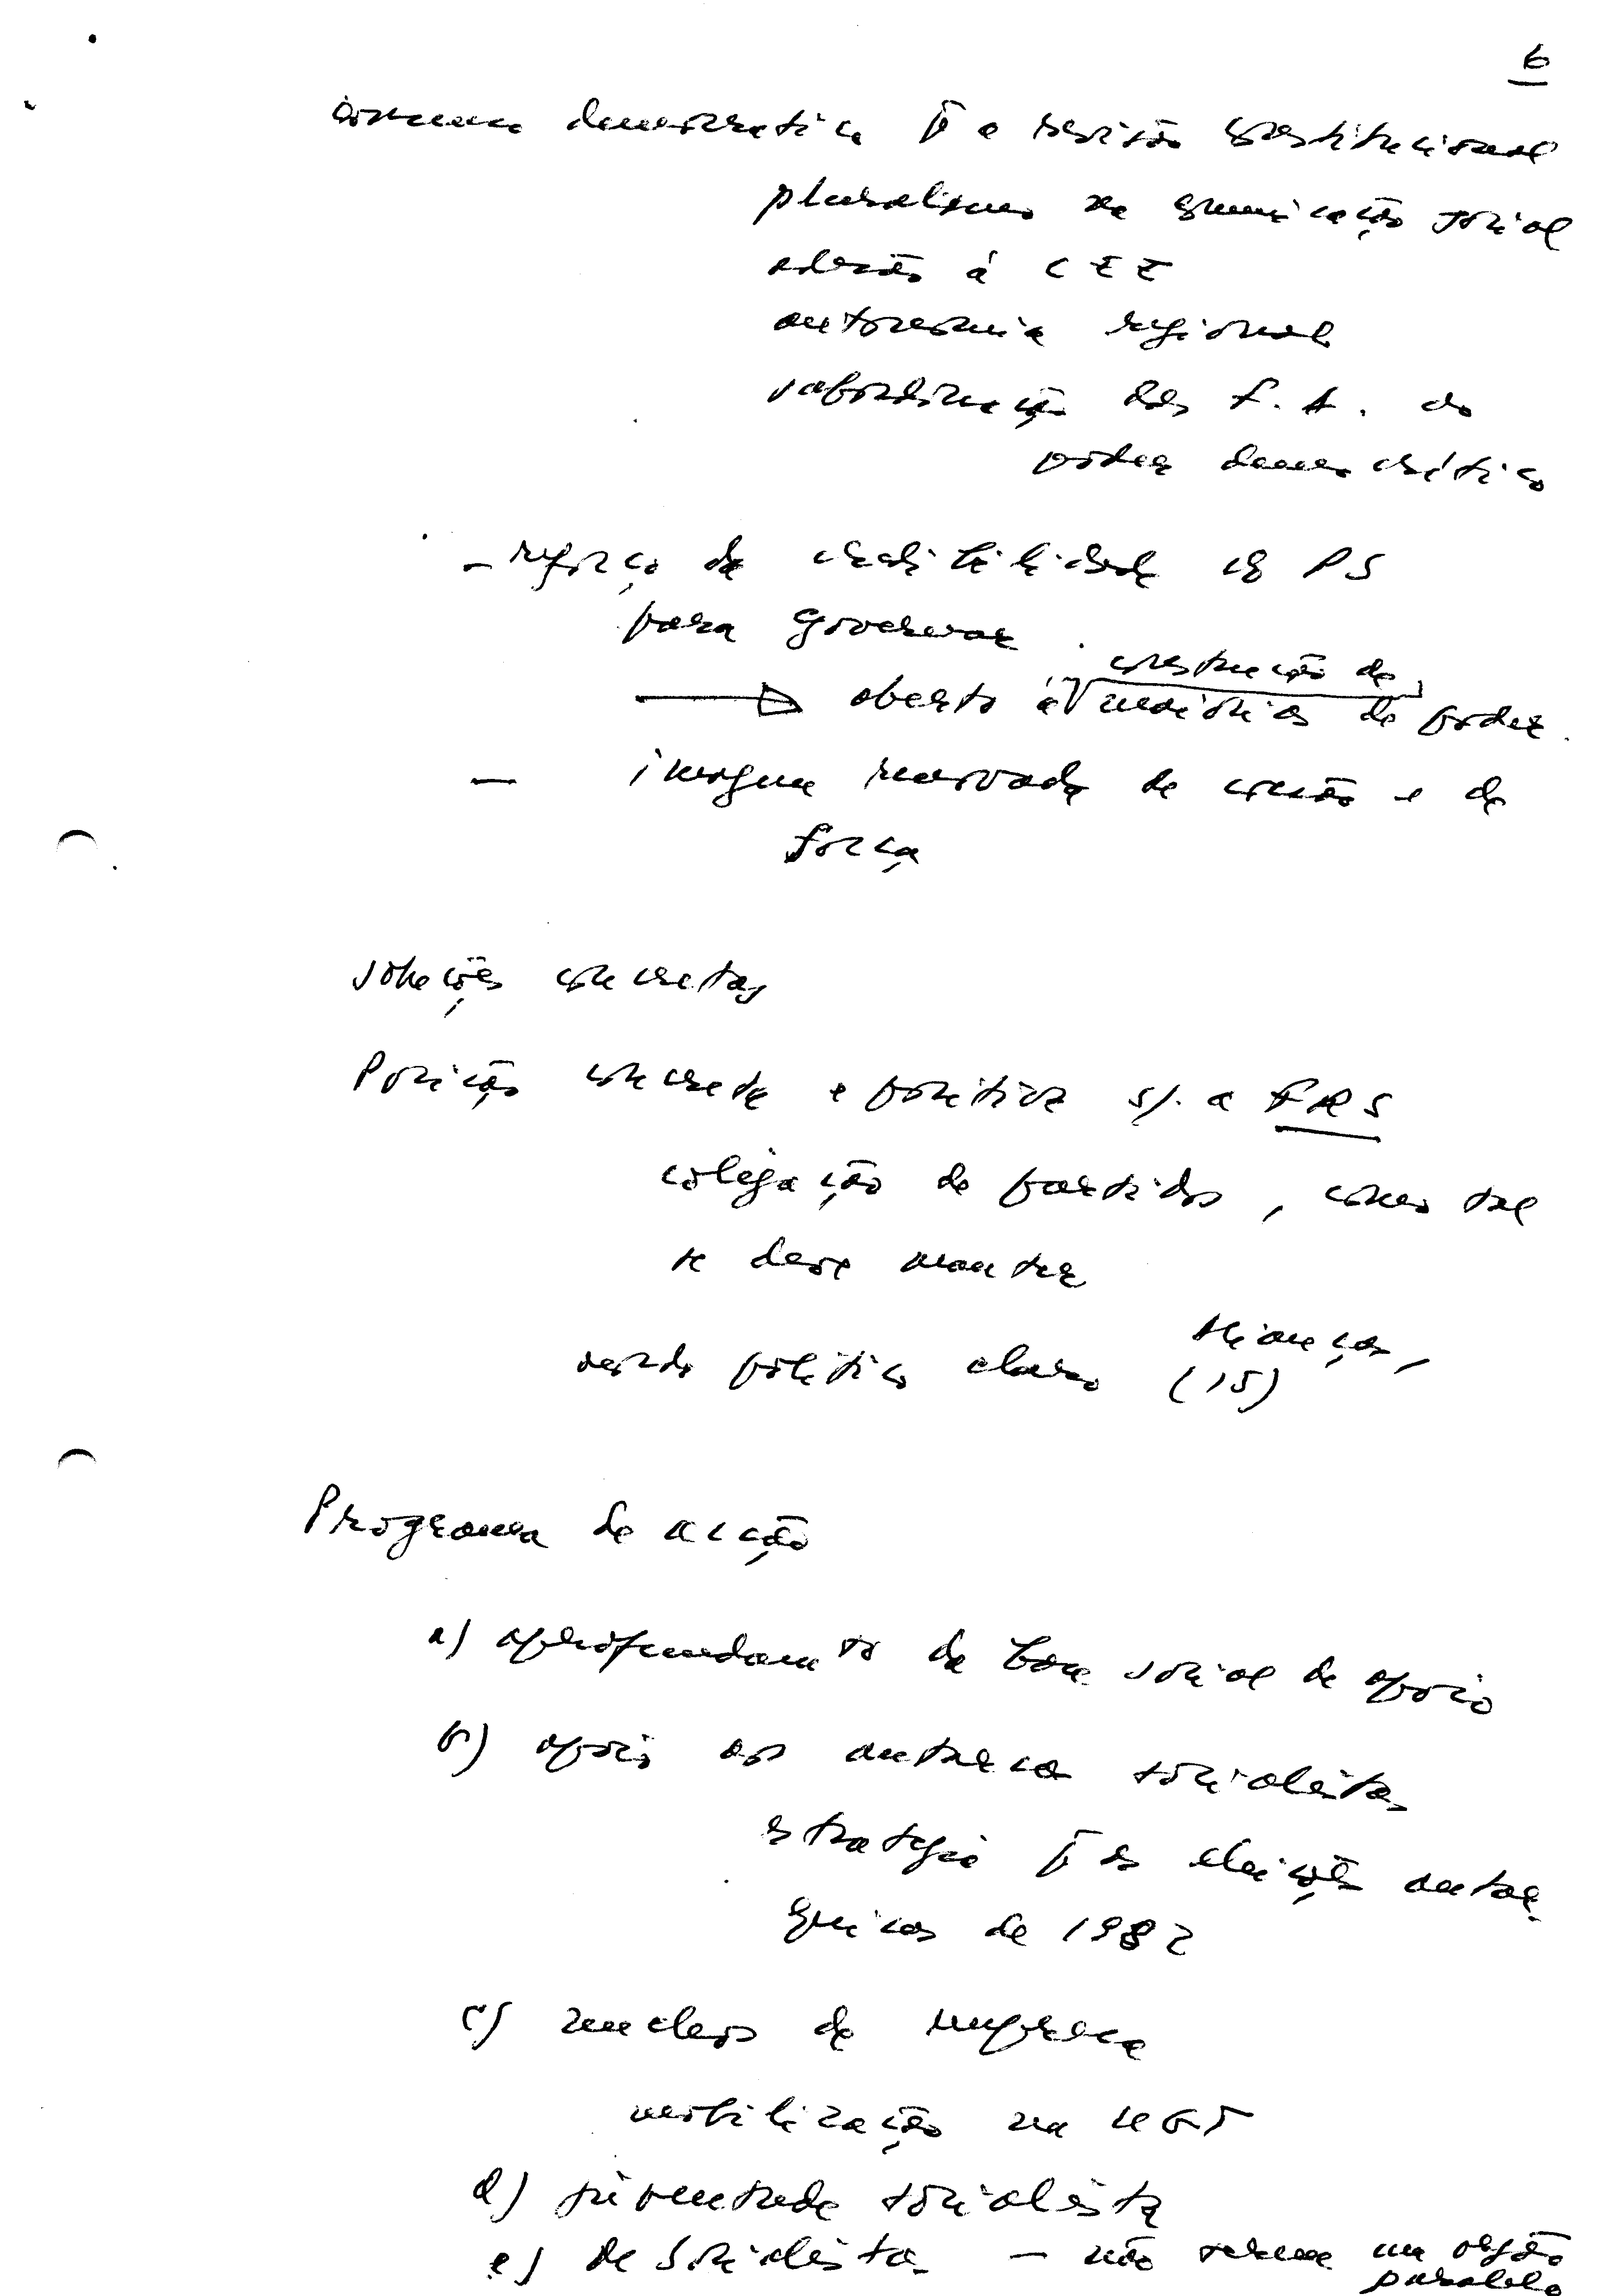 6
democratica p̄ a revisão constitucional
pluralismo na comunicação social
adesão á CEE
autonomia regional
subordinação das F.A. ao
poder democrático
- reforço da credibilidade do PS
para governar
construção de
aberto á maiorias de poder.
- imagem renovada de coesão e de
força
soluções concretas
Posição concreta e positiva s/. a FRS
coligação de partidos, como tal
se deve manter
acordo politico claro (15)
Programa de acção
a) aprofundamto da base social de apoio
b) apoio aos autarcas socialistas
estrategia p̄ as eleições autar-
quicas de 1982
c) nucleos de empresa
mobilização na UGT
d) juventude socialista
e) socialistas - não um orgão
paralelo